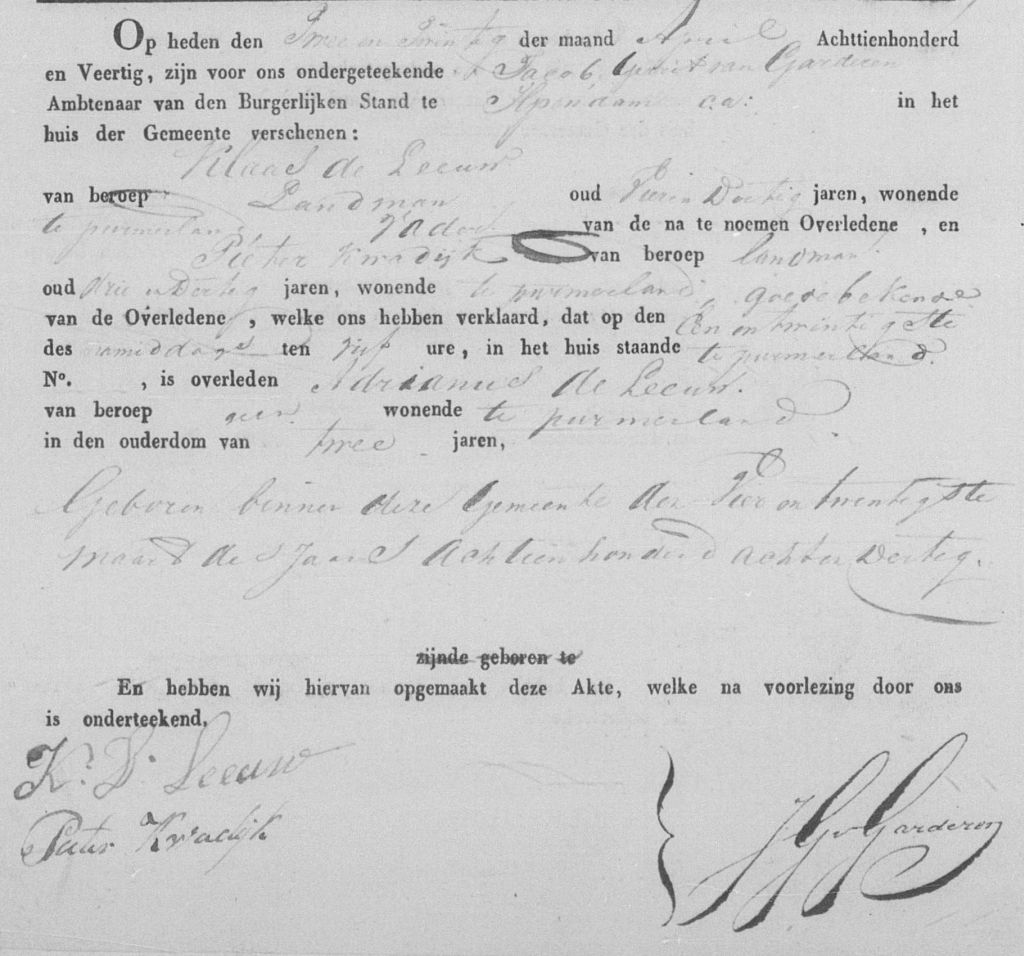 Op heden den Twee en Twintig der maand April Achttienhonderd
en Veertig, zijn voor ons ondergeteekende Jacob Gerrit van Garderen
Ambtenaar van den Burgerlijken Stand te Ilpendam c.a: in het
huis der Gemeente verschenen:
Klaas de Leeuw
van beroep Landman oud Vier en Dertig jaren, wonende
te purmerland, Vader van de na te noemen Overledene , en
Pieter Kwadijk van beroep landman
oud drie en Dertig jaren, wonende te purmerland, goede bekende
van de Overledene , welke ons hebben verklaard, dat op den Een en twintigste
des namiddags ten vijf ure, in het huis staande te purmerland.
No. , is overleden Adrianus de Leeuw.
van beroep geen wonende te purmerland
in den ouderdom van twee jaren,
Geboren binnen deze Gemeente den Vier en twentigste
maart des Jaars Achtien honderd acht en Dertig.
zijnde geboren te
En hebben wij hiervan opgemaakt deze Akte, welke na voorlezing door ons
is onderteekend.
Ks. D. Leeuw
Pieter Kwadijk
JGvGarderen